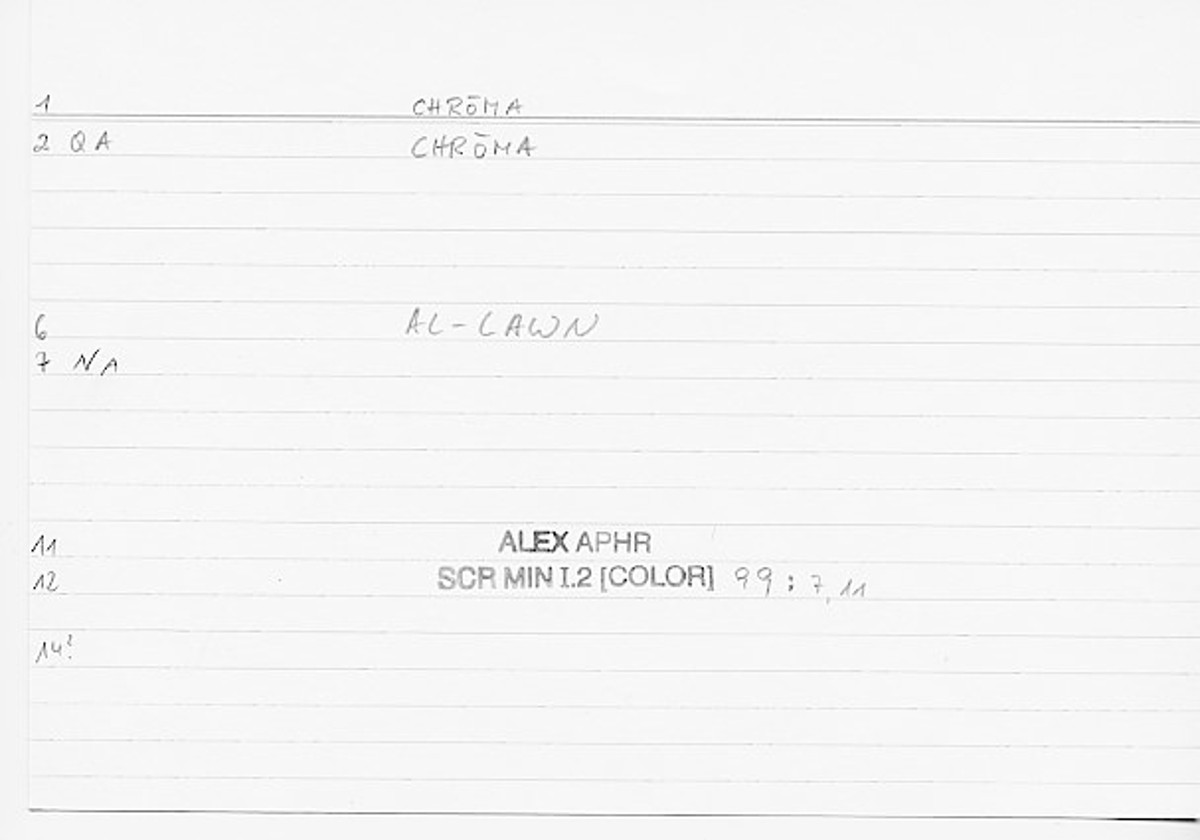 1 CHRŌMA
2 QA CHRŌMA
6 AL-LAWN
7 NA
11 ALEX APHR
12 SCR MIN I.2 [COLOR] 99 : 7, 11
14?